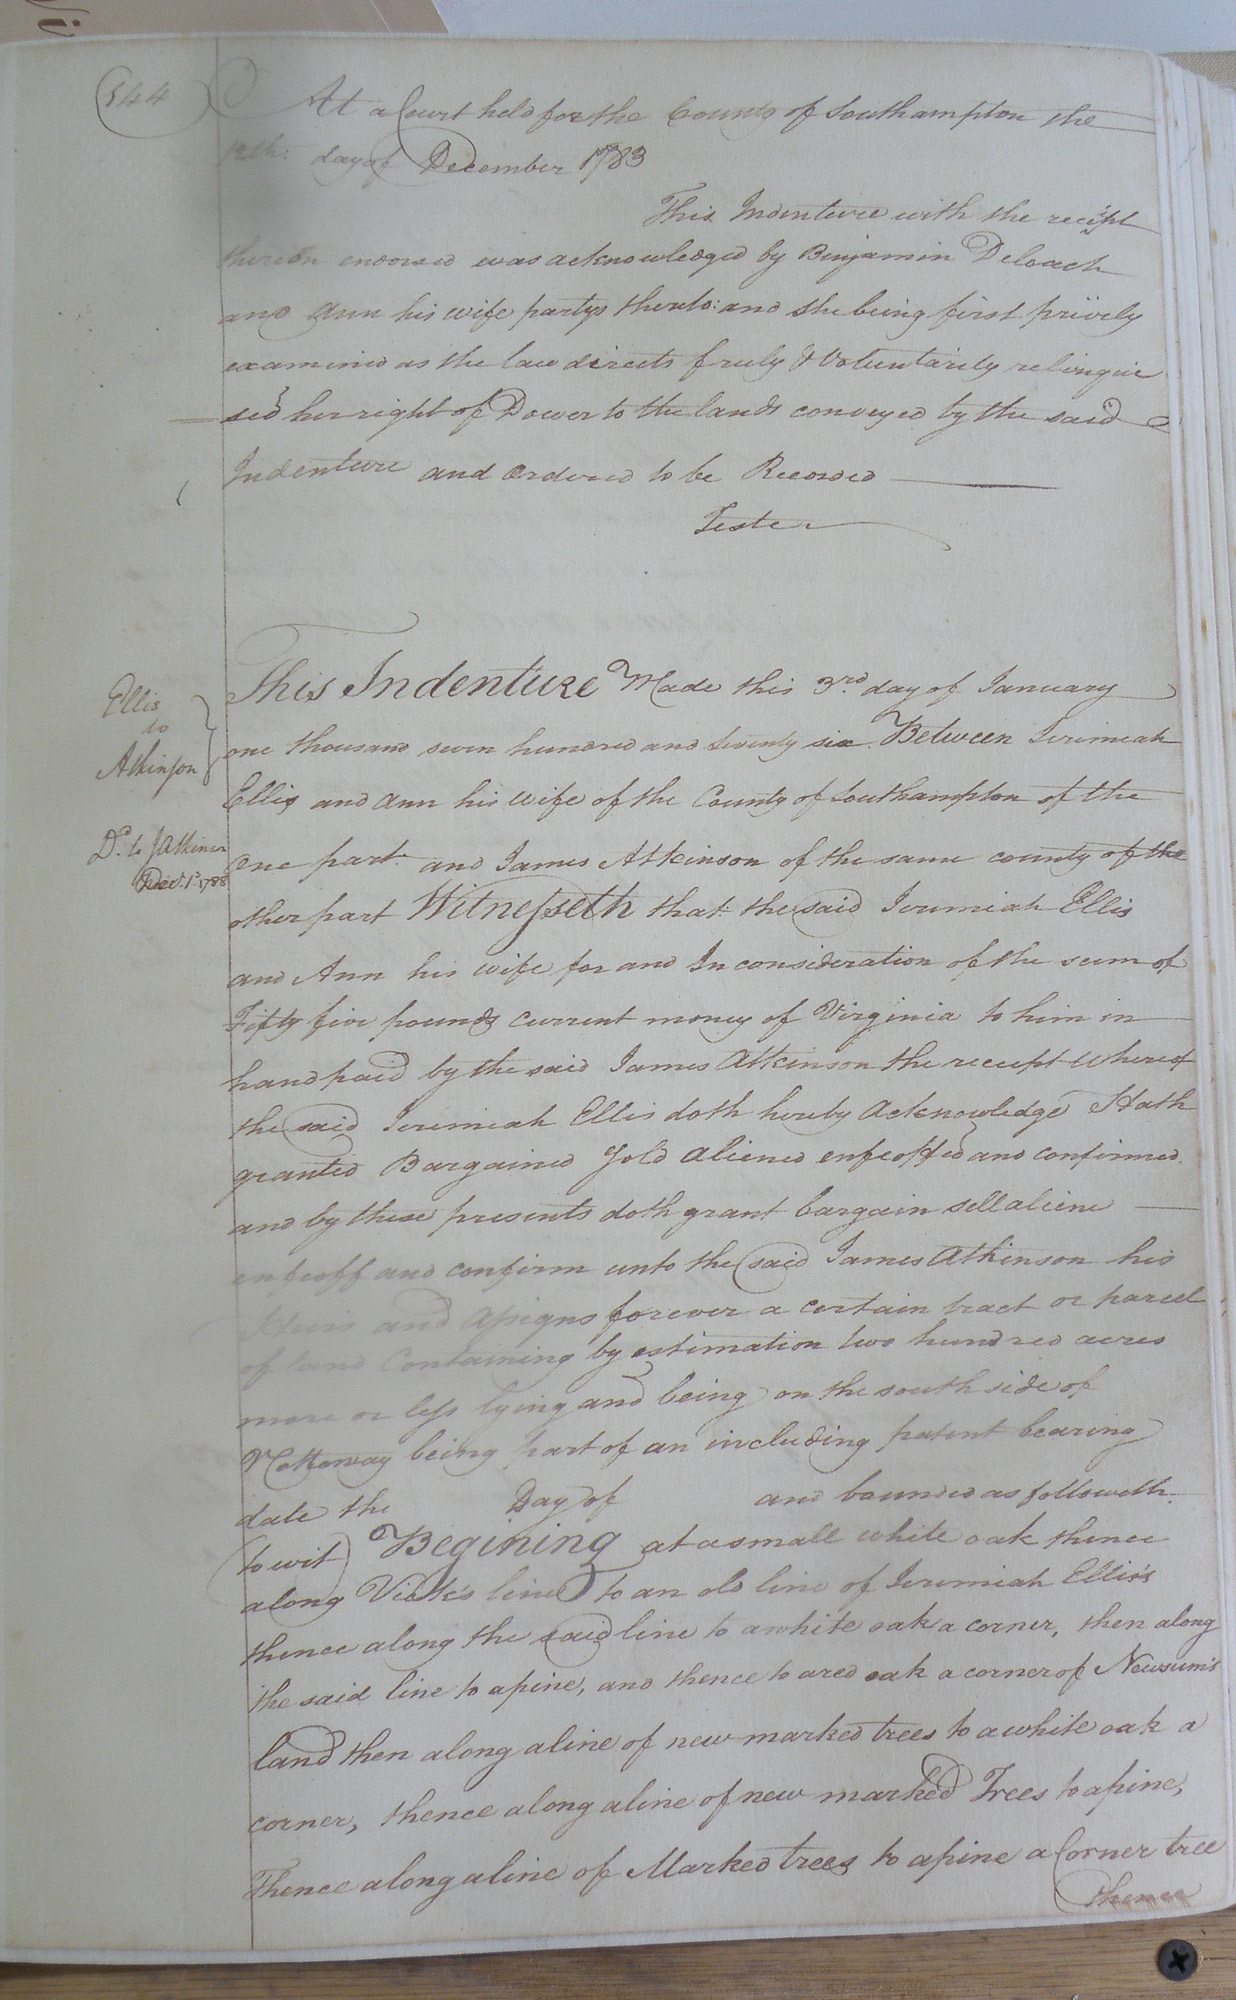 544
At a Court held for the County of Southampton the
day of December 1783
This Indenture with the receipt
thereon endorsed was acknowledged by Binjamin Deloach
and Ann his wife partys thereto: and she being first privily
examined as the law directs freely & Voluntarily relinquie
sed her right of Dower to the lands conveyed by the said
Indenture and Ordered to be Recorded
Teste
Ellis
to
Atkinson
Dd. to J Atkinson
Decr. 1st 1788
This Indenture Made this 3rd day of January
one thousand seven hundred and seventy six Between Jeremiah
Ellis and Ann his wife of the County of Southampton of the
one part and James Atkinson of the same county of the
other part Witnesseth that the said Jeremiah Ellis
and Ann his wife for and In consideration of the sum of
Fifty five pounds current money of Virginia to him in
hand paid by the said James Atkinson the receipt whereof
the said Jeremiah Ellis doth hereby Acknowledge Hath
granted Bargained Sold aliened enfeoffed and confirmed
and by these presents doth grant bargain sell aliene
enfeoff and confirm unto the said James Atkinson his
Heirs and Assigns forever a certain tract or parcel
of land Containing by estimation two hundred acres
more or less lying and being on the south side of
Nottoway being part of an including patent bearing
date the Day of and bounded as followeth
(to wit) Begining at a small white oak thence
along Vick's line to an old line of Jeremiah Ellis's
thence along the said line to a white oak a corner, then along
the said line to a pine, and thence to a red oak a corner of Newsum's
land then along a line of new marked trees to a white oak a
corner, thence along a line of new marked Trees to a pine,
Thence along a line of Marked trees to a pine a Corner tree
thence